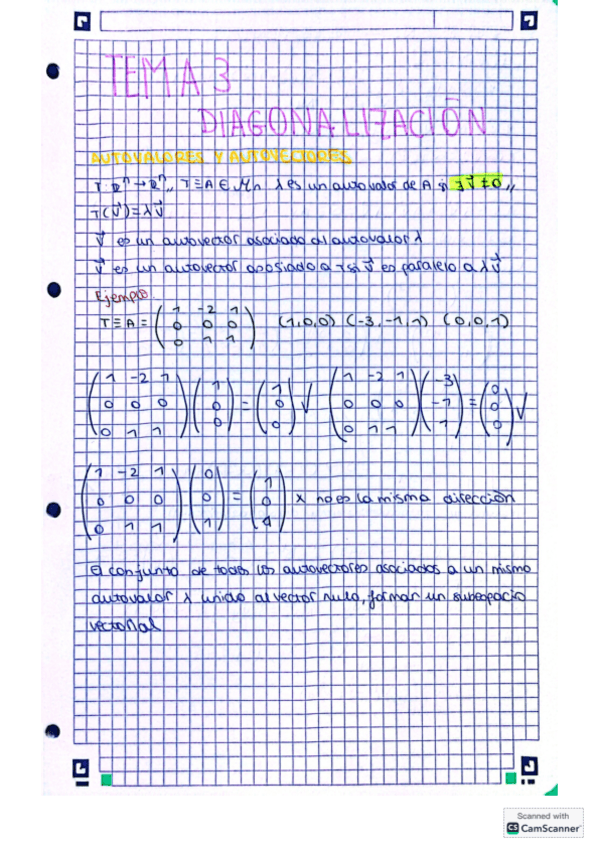 TEMA 3
DIAGONALIZACIÓN
AUTOVALORES Y AUTOVECTORES
T: R^n → R^n,, T ≡ A ∈ Mn λ es un autovalor de A si ∃ v⃗ ≠ 0,,
T(v⃗) = λv⃗
v⃗ es un autovector asociado al autovalor λ
v⃗ es un autovector asosiado a T si v⃗ es paralelo a λv⃗
Ejemplo
T ≡ A = (1 -2 1; 0 0 0; 0 1 1) (1,0,0) (-3,-1,1) (0,0,1)
(1 -2 1; 0 0 0; 0 1 1) (1; 0; 0) = (1; 0; 0) ✓ (1 -2 1; 0 0 0; 0 1 1) (-3; -1; 1) = (0; 0; 0) ✓
(1 -2 1; 0 0 0; 0 1 1) (0; 0; 1) = (1; 0; 1) x no es la misma dirección
El conjunto de todos los autovectores asociados a un mismo
autovalor λ unido al vector nulo, forman un subespacio
vectorial
Scanned with
CS CamScanner